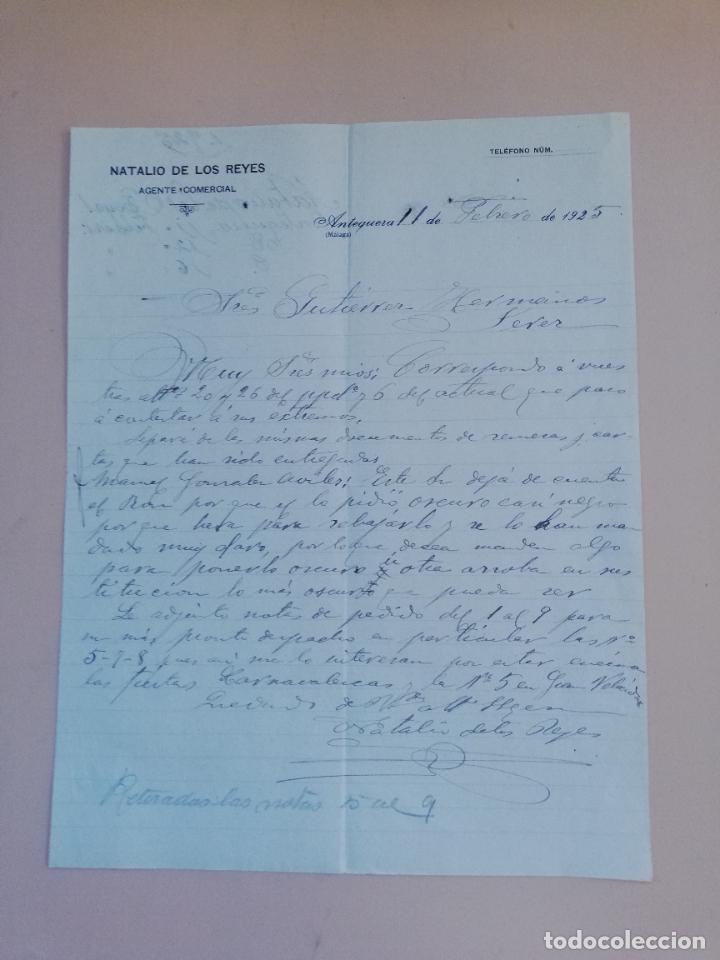 NATALIO DE LOS REYES
AGENTE COMERCIAL
TELÉFONO NÚM.
Antequera 11 de Febrero de 1925
(Málaga)
Sres Gutiérrez Hermanos
Jerez
Muy Sres mios: Correspondo á vues
tras 20 y 26 del ppdo y 6 del actual que paso
á contestar á sus extremos.
Separé de las mismas documentos de remesas y car
tas que han sido entregadas
Manuel Gonzalez Aviles: Este Sr dejá de cuenta
el Ron por que el lo pidió oscuro casi negro
por que era para rebajarlo y se lo han man
dado muy claro, por lo que desea manden algo
para ponerlo oscuro ú otra arroba en sus
titucion lo más oscuro que pueda ser
Le adjunto notas de pedido del 1 al 9 para
su más pronto despacho en particular las Nº
5-7-8 pues asi me lo interesan por estar encima
las fiestas Carnavalescas y la Nº 5 en Gran Velocidad
Quedando de Vds
Natalio de los Reyes
Retiradas las notas 5 al 9
todocoleccion